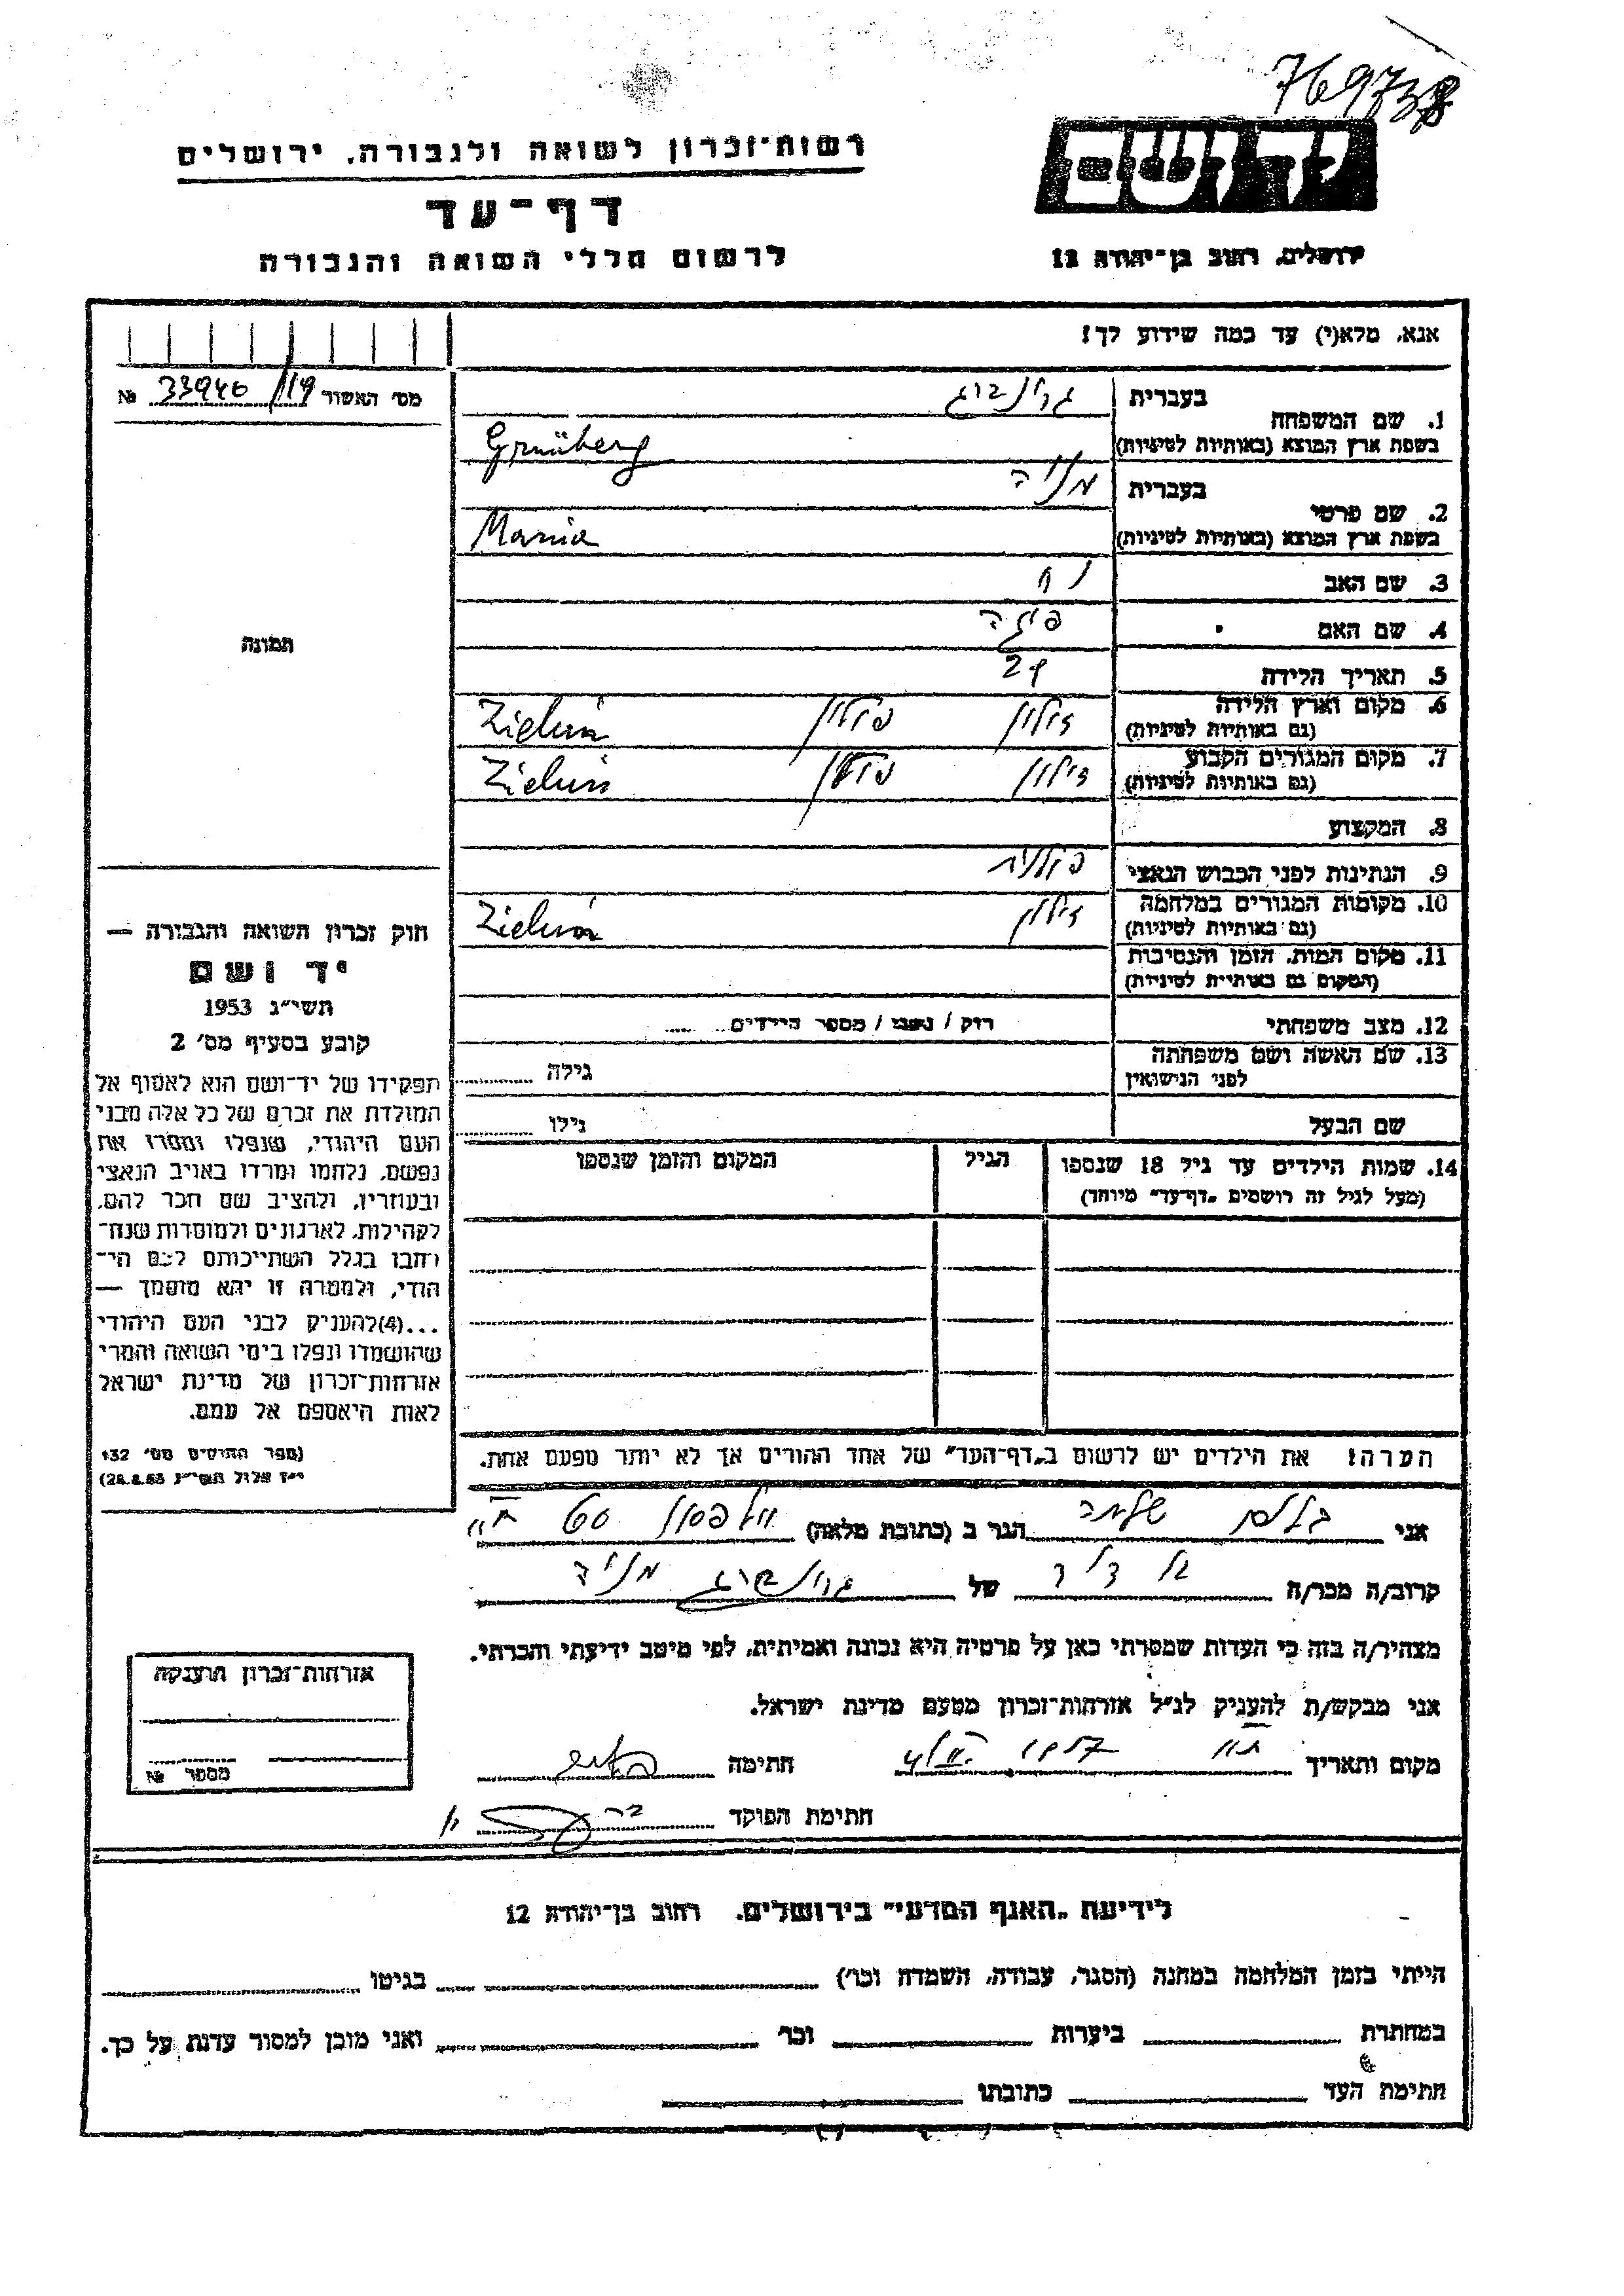 769738
יד ושם
ירושלים, רחוב בן־יהודה 12
רשות־זכרון לשואה ולגבורה, ירושלים
דף־עד
לרשום חללי השואה והגבורה
אנא, מלא(י) עד כמה שידוע לך!
מס׳ האשור 33940/119 №
תמונה
חוק זכרון השואה והגבורה —
יד ושם
תשי״ג 1953
קובע בסעיף מס׳ 2
תפקידו של יד־ושם הוא לאסוף אל
המולדת את זכרם של כל אלה מבני
העם היהודי, שנפלו ומסרו את
נפשם, נלחמו ומרדו באויב הנאצי
ובעוזריו, ולהציב שם וזכר להם,
לקהילות, לארגונים ולמוסדות שנח־
רבו בגלל השתייכותם לעם הי־
הודי, ולמטרה זו יהא מוסמך —
...(4)להעניק לבני העם היהודי
שהושמדו ונפלו בימי השואה והמרי
אזרחות־זכרון של מדינת ישראל
לאות היאספם אל עמם.
(ספר החוקים מס׳ 132
י״ז אלול תשי״ג 28.8.53)
1. שם המשפחה בעברית גרינברג
בשפת ארץ המוצא (באותיות לטיניות) Grünberg
2. שם פרטי בעברית מניה
בשפת ארץ המוצא (באותיות לטיניות) Mania
3. שם האב נח
4. שם האם פייגה
5. תאריך הלידה
6. מקום וארץ הלידה (גם באותיות לטיניות) זילון פולין Zieluń
7. מקום המגורים הקבוע (גם באותיות לטיניות) זילון פולין Zieluń
8. המקצוע
9. הנתינות לפני הכבוש הנאצי פולנית
10. מקומות המגורים במלחמה (גם באותיות לטיניות) זילון Zieluń
11. מקום המות, הזמן והנסיבות (המקום גם באותיות לטיניות)
12. מצב משפחתי רוק / נשוי / מספר הילדים
13. שם האשה ושם משפחתה לפני הנישואין גילה
שם הבעל גילו
14. שמות הילדים עד גיל 18 שנספו הגיל המקום והזמן שנספו
(מעל לגיל זה רושמים „דף־עד״ מיוחד)
הערה! את הילדים יש לרשום ב„דף־העד״ של אחד ההורים אך לא יותר מפעם אחת.
אני שלמה הגר ב (כתובת מלאה) וולפסון 60 ת״א
קרוב/ה מכר/ה של גרינברג מניה
מצהיר/ה בזה כי העדות שמסרתי כאן על פרטיה היא נכונה ואמיתית, לפי מיטב ידיעתי והכרתי.
אני מבקש/ת להעניק לנ״ל אזרחות־זכרון מטעם מדינת ישראל.
מקום ותאריך חתימה
חתימת הפוקד
אזרחות־זכרון הוענקה
מספר №
לידיעת „האגף המדעי״ בירושלים. רחוב בן־יהודה 12
הייתי בזמן המלחמה במחנה (הסגר, עבודה, השמדה וכו׳) בגיטו
במחתרת ביערות וכו׳ ואני מוכן למסור עדות על כך.
חתימת העד כתובתו